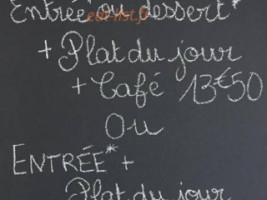 Entrée ou dessert*
+ Plat du jour
+ Café 13€50
Ou
ENTRÉE* +
Plat du jour